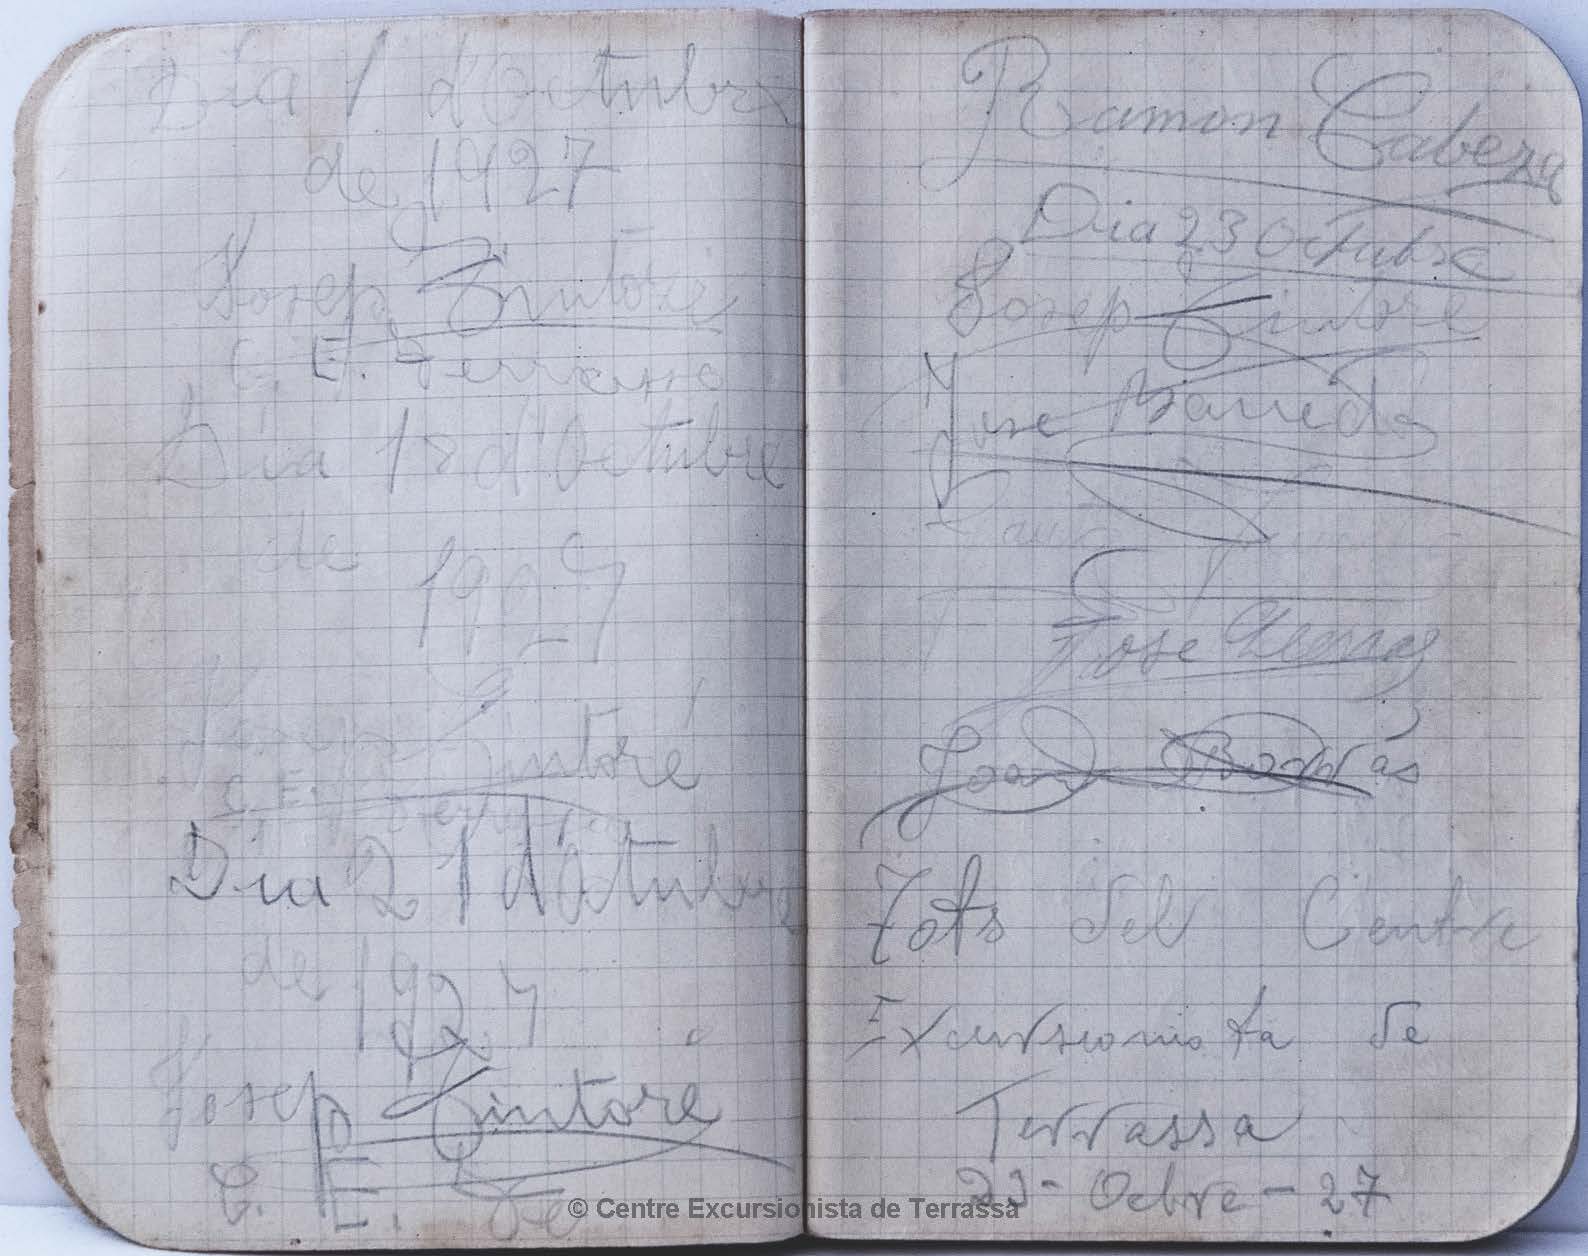 Dia 1 d'Octubre
de 1927
Josep Sintoré
C. E. Terrassa
Dia 12 d'Octubre
de 1927
Josep Sintoré
C. E.
Dia 21 d'Octubre
de 1927
Josep Sintoré
C. E. Te
Ramon Cabeza
Dia 23 Octubre
Josep Sintoré
Jose
Jose
Joan
Tots del Centre
Excursionista de
Terrassa
23 - Ocbre - 27
© Centre Excursionista de Terrassa